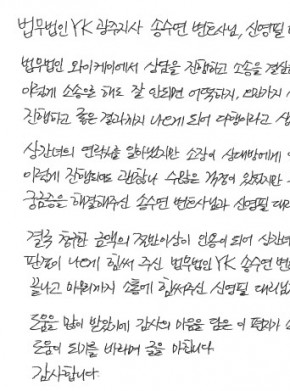 법무법인 YK 광주지사 송수연 변호사님, 신영필 대
법무법인 와이케이에서 상담을 진행하고 소송을 결심
이렇게 소송을 해도 잘 안되면 어떡하지,
진행하고 좋은 결과까지 나오게 되어 다행이라고 생
상간녀의 연락처를 알아냈지만 소장이 상대방에게
이렇게 진행되도 괜찮나 수많은 걱정이 있었지만
궁금증을 해결해주신 송수연 변호사님과 신영필 대리
결국 청구한 금액의 절반이상이 인용이 되어 상간녀
판결이 나오게 힘써 주신 법무법인 YK 송수연 변
끝나고 마무리까지 소통에 힘써주신 신영필 대리님
도움을 많이 받았기에 감사의 마음을 담은 이 편지가
도움이 되기를 바라며 글을 마칩니다.
감사합니다.